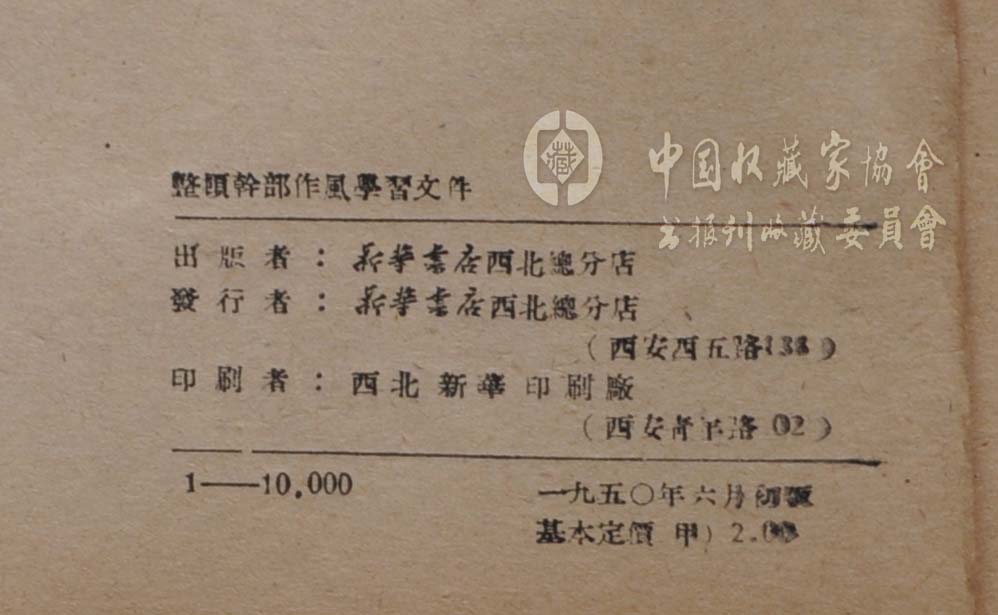 藏
中国收藏家協會
书报刊收藏委員會
整頓幹部作風學習文件
出版者：新華書店西北總分店
發行者：新華書店西北總分店
（西安西五路138）
印刷者：西北新華印刷廠
（西安青年路02）
1——10.000
一九五〇年六月初版
基本定價 甲）2.00